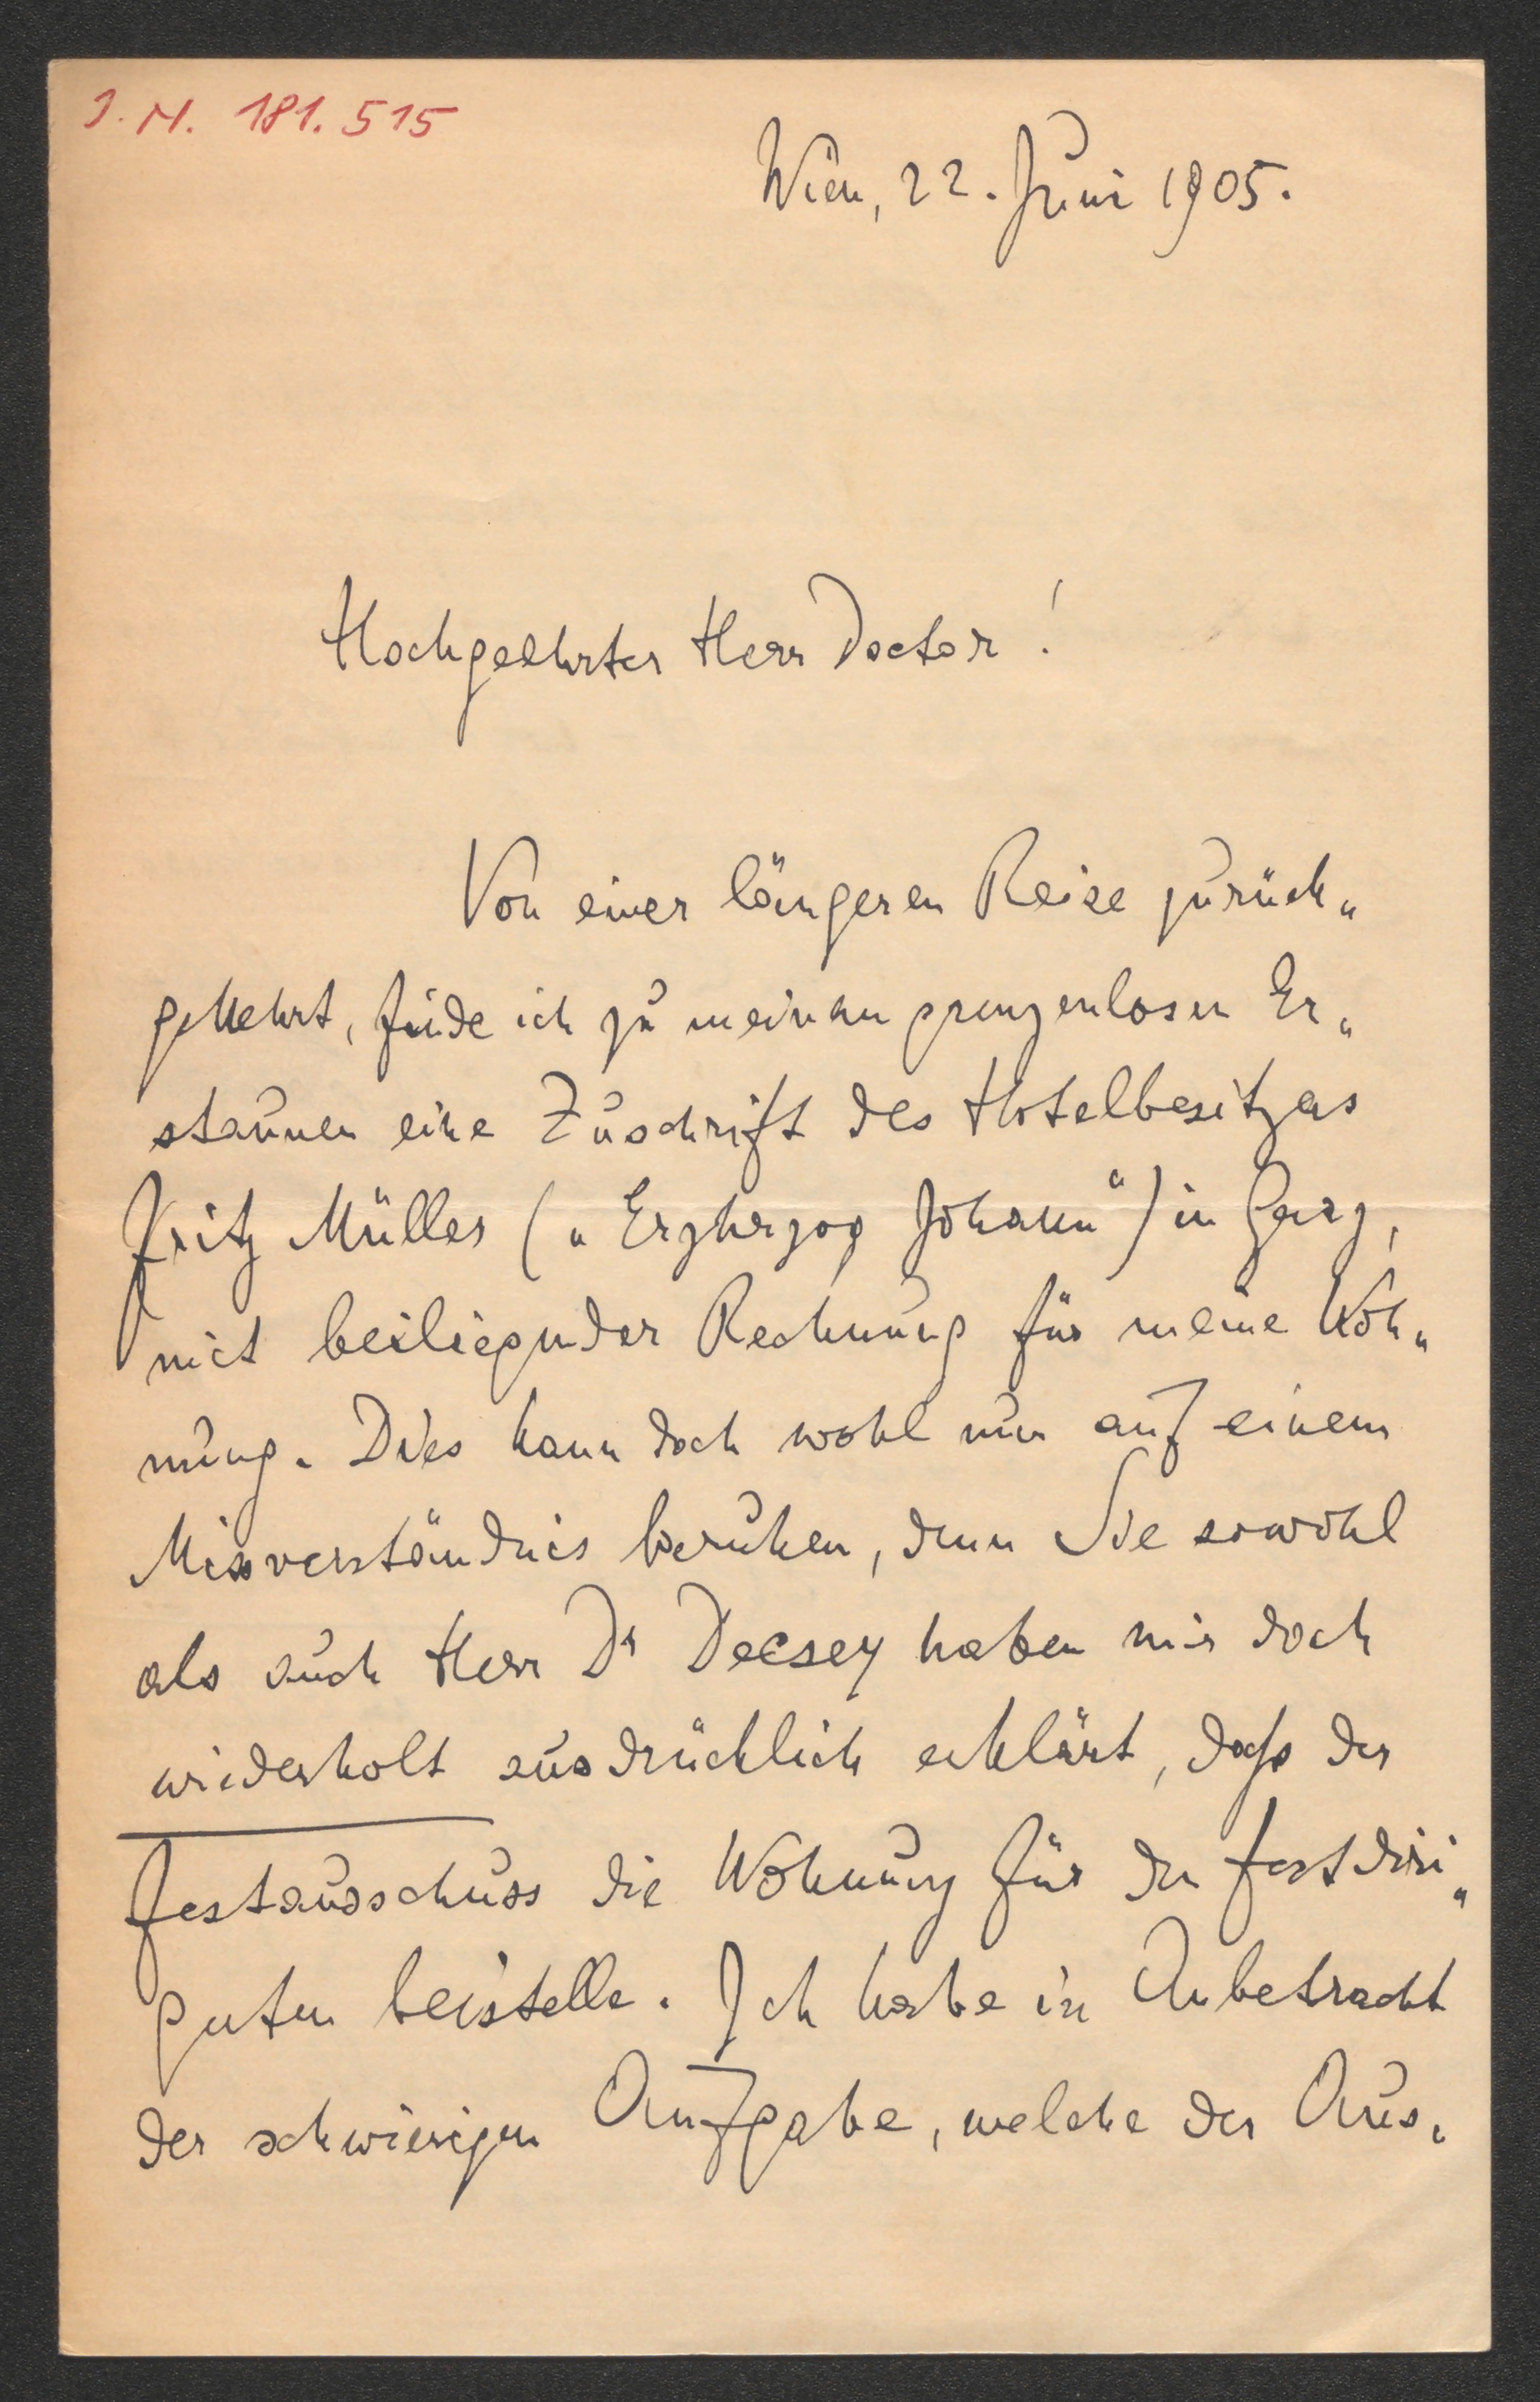 J. N. 181.515
Wien, 22. Juni 1905.
Hochgeehrter Herr Doctor!
Von einer längeren Reise zurück„
gekehrt, finde ich zu meinem grenzenlosen Er„
staunen eine Zuschrift des Hotelbesitzers
Fritz Müller („Erzherzog Johann“) in Graz,
mit beiliegender Rechnung für meine Woh„
nung. Dies kann doch wohl nur auf einem
Missverständnis beruhen, denn Sie sowohl
als auch Herr Dr Decsey haben mir doch
wiederholt ausdrücklich erklärt, dass der
Festausschuss die Wohnung für den Festdiri„
genten beistelle. Ich habe in Anbetracht
der schwierigen Aufgabe, welche der Aus„